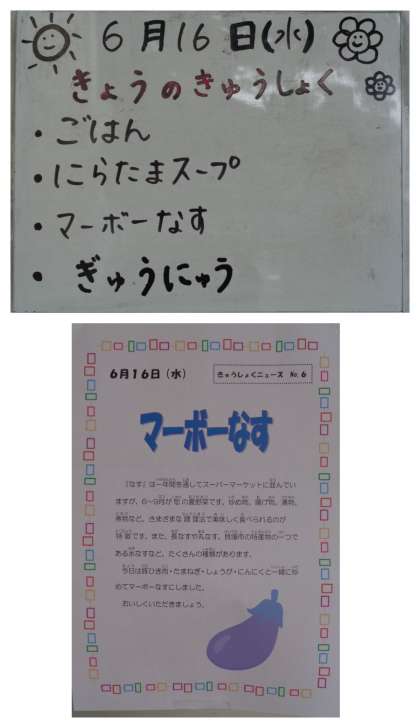 6月16日(水)
きょうのきゅうしょく
・ごはん
・にらたまスープ
・マーボーなす
・ぎゅうにゅう
6月16日（水）
きゅうしょくニュース No.6
マーボーなす
『なす』は一年間を通してスーパーマーケットに並んでい
ますが、6～9月が旬の夏野菜です。炒め物、揚げ物、漬物、
煮物など、さまざまな調理法で美味しく食べられるのが
特徴です。また、長なすや丸なす、貝塚市の特産物の一つで
ある水なすなど、たくさんの種類があります。
今日は豚ひき肉・たまねぎ・しょうが・にんにくと一緒に炒
めてマーボーなすにしました。
おいしくいただきましょう。